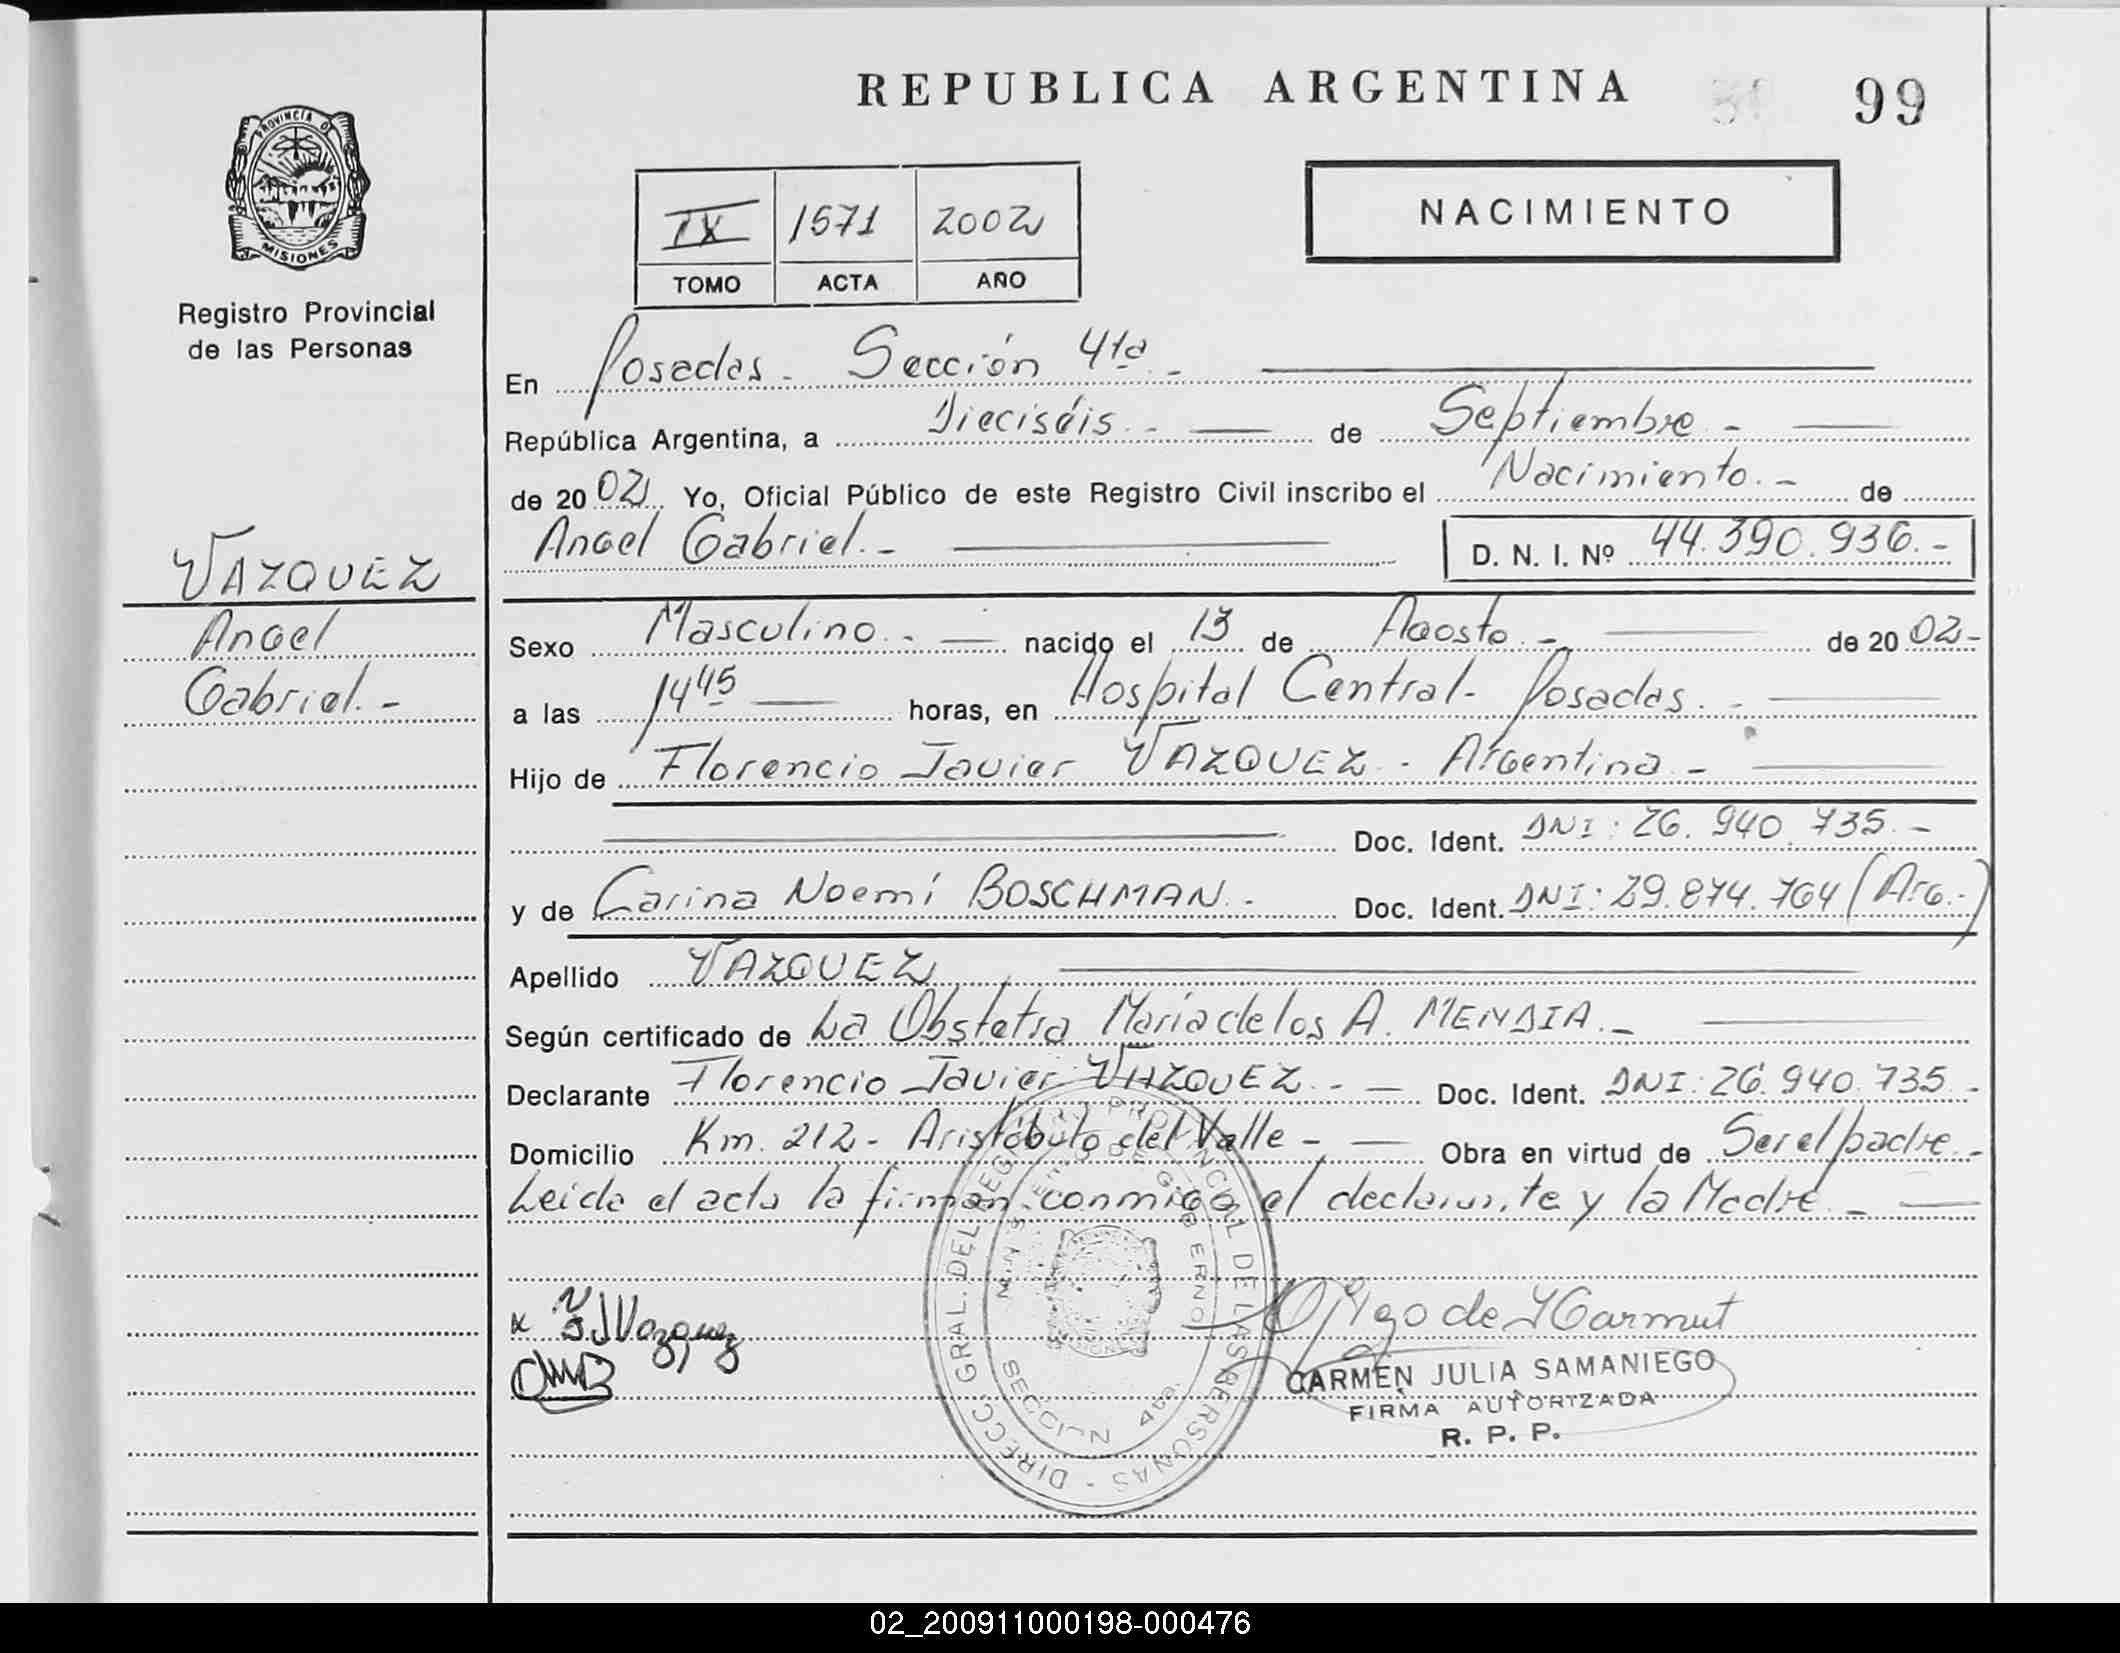 REPUBLICA ARGENTINA
99
PROVINCIA DE
MISIONES
Registro Provincial
de las Personas
IX 1571 2002
TOMO ACTA AÑO
NACIMIENTO
En Posadas - Sección 4ta -
República Argentina, a Dieciséis - de Septiembre -
de 2002 Yo, Oficial Público de este Registro Civil inscribo el Nacimiento.- de
Angel Gabriel.- D. N. I. Nº 44.390.936.-
VAZQUEZ
Angel
Gabriel.-
Sexo Masculino.- nacido el 13 de Agosto.- de 2002-
a las 14 45 horas, en Hospital Central- Posadas.-
Hijo de Florencio Javier VAZQUEZ - Argentina -
Doc. Ident. DNI: 26.940.735.-
y de Carina Noemí BOSCHMAN.- Doc. Ident. DNI: 29.874.764 (Arg.-)
Apellido VAZQUEZ
Según certificado de La Obstetra María de los A. MENDIA.-
Declarante Florencio Javier VAZQUEZ.- Doc. Ident. DNI: 26.940.735.-
Domicilio Km. 212- Aristóbulo del Valle - Obra en virtud de Ser el padre -
Leida el acta la firman conmigo el declarante y la Madre -
x FJVazquez
DIRECC. GRAL. DEL REGISTRO PROVINCIAL DE LAS PERSONAS -
MINISTERIO DE GOBIERNO
SECCION 4ta.
CARMEN JULIA SAMANIEGO
FIRMA AUTORIZADA
R. P. P.
02_200911000198-000476